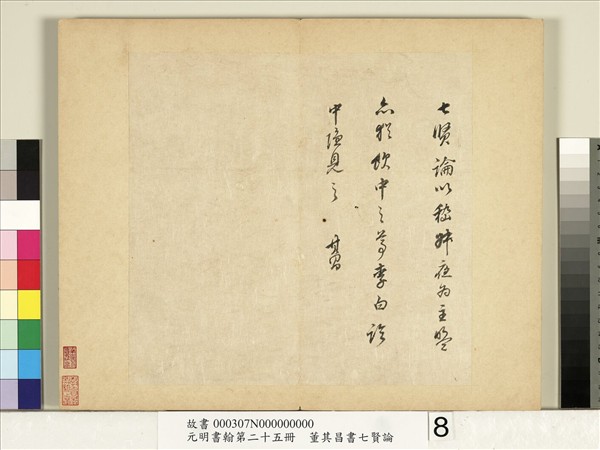 七賢論以嵇叔夜為主盟
亦猶飲中之尊李白詩
中隱見之 其昌
故書 000307N000000000
元明書翰第二十五冊 董其昌書七賢論
8